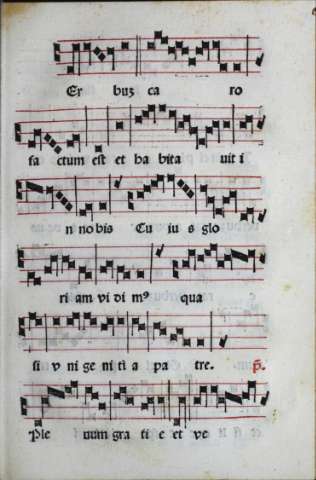 Er buʒ ca ro
fa ctum est et ha bita uit i
n nobis Cu ius glo
ri am vi di mꝰ qua
si v ni ge ni ti a pa tre. p̄.
Ple num gra ti e et ve